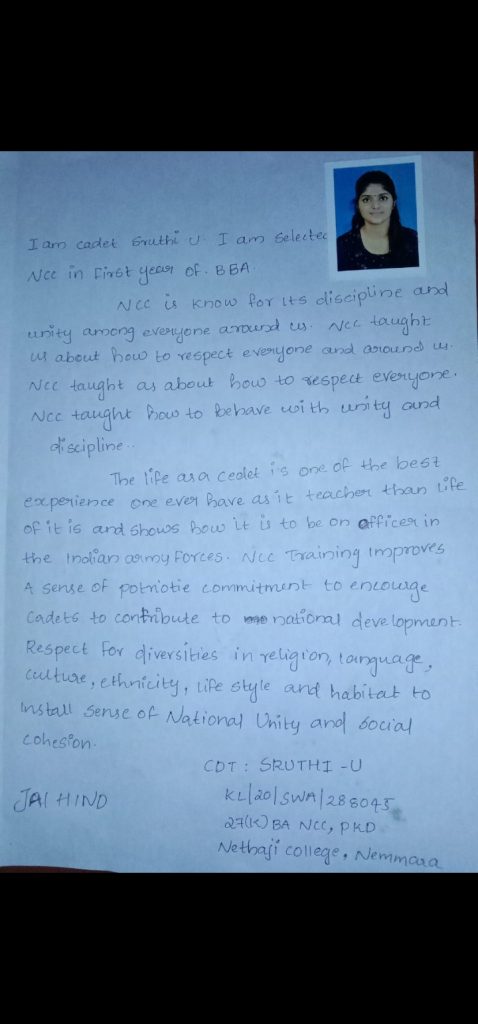 I am cadet Sruthi U. I am Selected
Ncc in First year of. BBA
Ncc is know for its discipline and
unity among everyone around us. Ncc taught
us about how to respect everyone and around us.
Ncc taught as about how to respect everyone.
Ncc taught how to behave with unity and
discipline..
The life as a cedet is one of the best
experience one ever have as it teacher than life
of it is and shows how it is to be on officer in
the Indian army forces. Ncc Training improves
A sense of potriotie commitment to encourge
Cadets to contribute to national development.
Respect for diversities in religion, language,
culture, ethnicity, life style and habitat to
Install sense of National Unity and social
cohesion.
CDT : SRUTHI - U
JAI HIND
KL/20/SWA/288045
27(K) BA NCC, PKD
Nethaji college, Nemmara